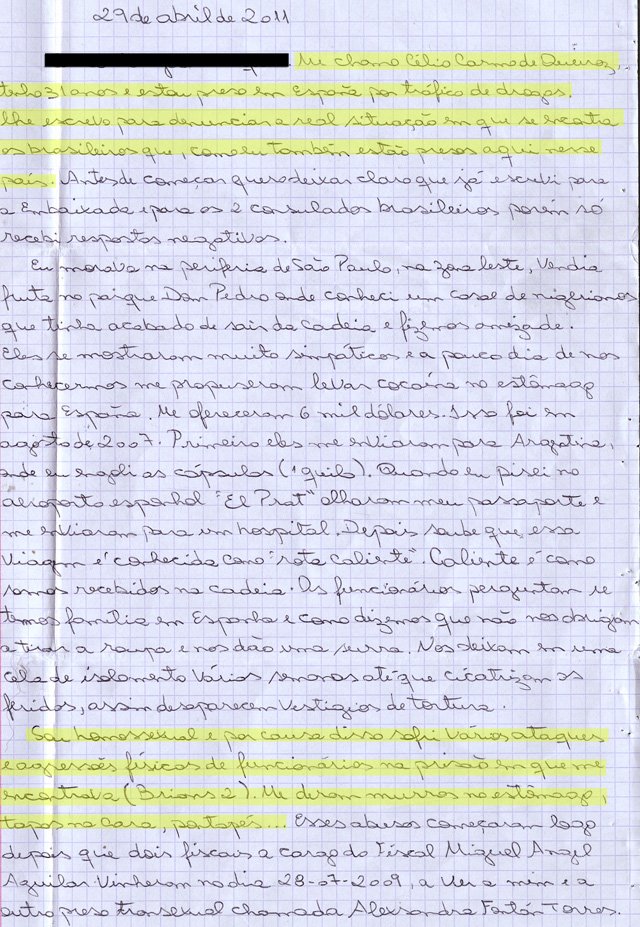 29 de abril de 2011
Me chamo Célio Carmo de Queiroz,
tenho 31 anos e estou preso em España por tráfico de drogas.
lhe escrevo para denunciar a real situação em que se encontra
os brasileiros que, como eu também estão presos aqui nesse
país. Antes de começar quero deixar claro que já escrevi para
a Embaixada e para os 2 consulados brasileiros porém só
recebi respostas negativas.
Eu morava na periferia de São Paulo, na zona leste, Vendia
fruta no parque Dom Pedro onde conheci um casal de nigerianos
que tinha acabado de sair da cadeia e fizemos amizade.
Eles se mostraram muito simpáticos e a pouco dia de nos
conhecermos me propuseram levar cocaína no estômago
para España. Me ofereceram 6 mil dólares. Isso foi em
agosto de 2007. Primeiro eles me enviaram para Argentina,
onde eu engoli as cápsulas (1 quilo). Quando eu pisei no
aeroporto espanhol "El Prat" olharam meu passaporte e
me enviaram para um hospital. Depois soube que essa
viagem é conhecida como "rota caliente". Caliente é como
somos recebidos na cadeia. Os funcionários perguntam se
temos família em Espanha e como dizemos que não nos obrigam
a tirar a roupa e nos dão uma surra. Nos deixam em uma
cela de isolamento vários semanas até que cicatrizam os
feridos, assim desaparecem vestígios de tortura.
Sou homossexual e por causa disso sofri vários ataques
e agressões físicas de funcionários na prisão em que me
encontrava (Brians 2). Me deram murros no estômago,
tapas na cara, pontapés... Esses abusos começaram logo
depois que dois fiscais a cargo do Fiscal Miguel Angel
Aguilar vinheram no dia 28-07-2009, a ver a mim e a
outro preso transexual chamada Alexsandra Fontán Torres.